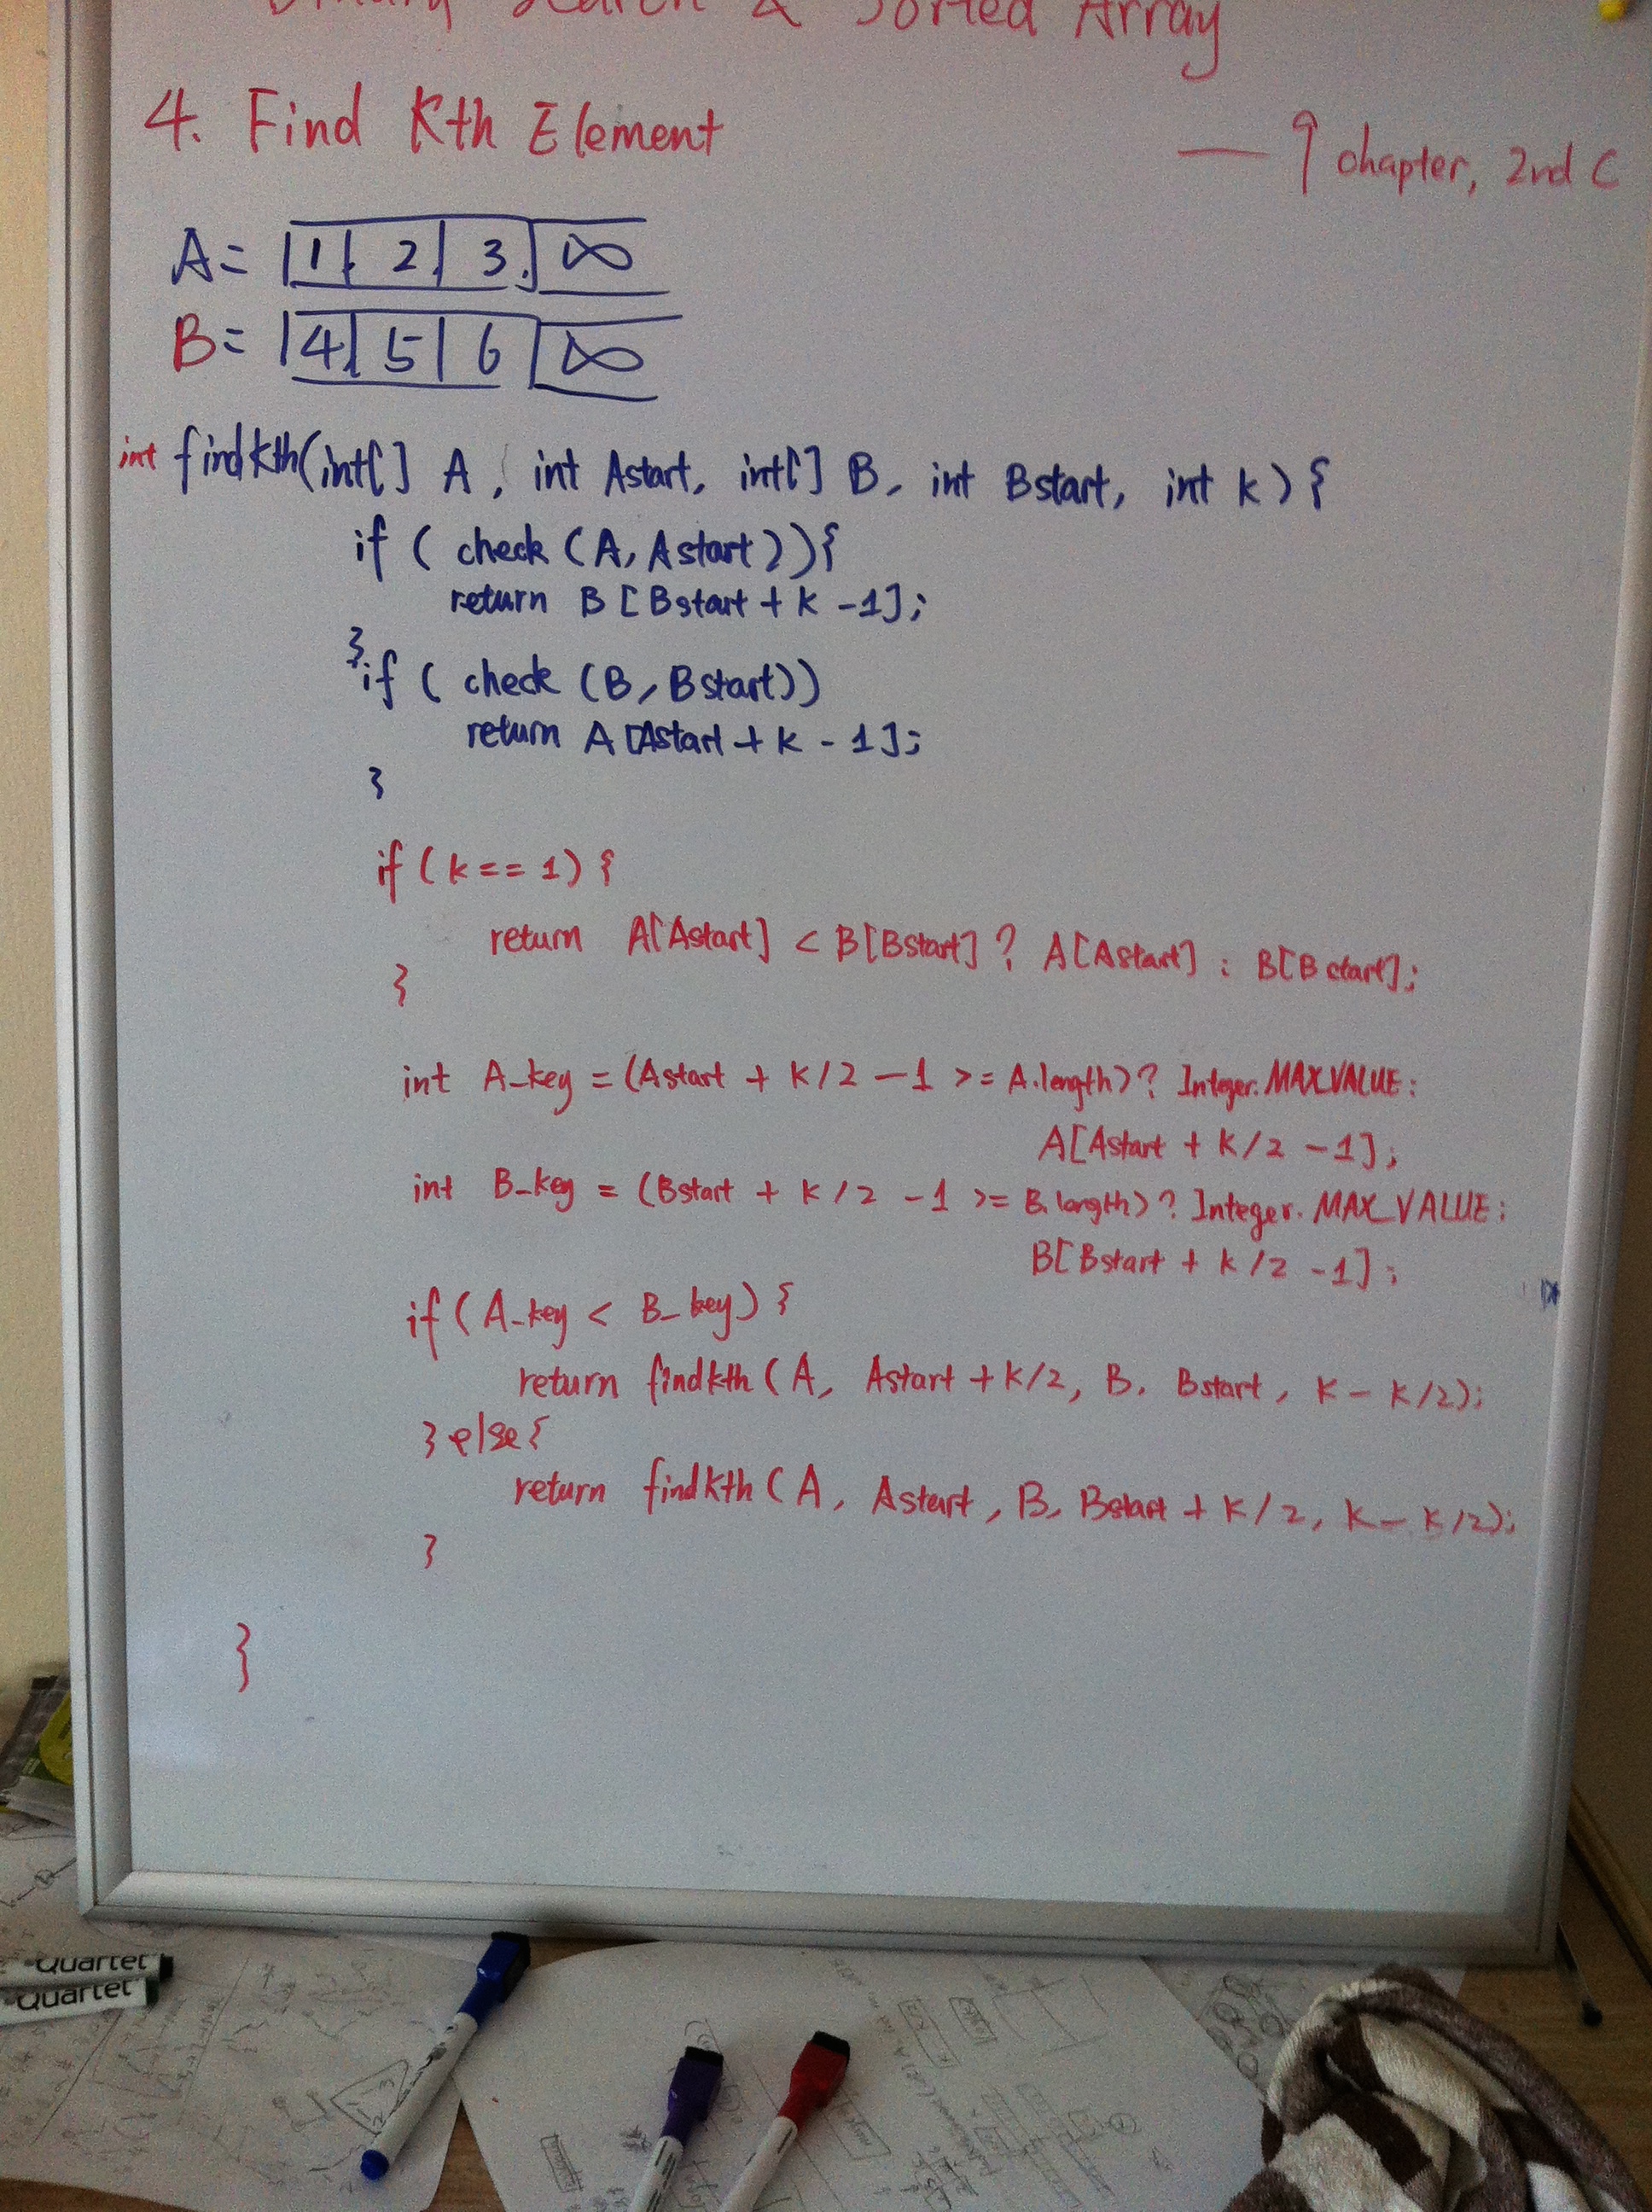 Binary Search & Sorted Array
4. Find Kth Element
— ↑ chapter, 2nd C
A= | 1 | 2 | 3 | ∞
B= | 4 | 5 | 6 | ∞
int findKth(int[] A, int Astart, int[] B, int Bstart, int k) {
if ( check (A, Astart)){
return B [Bstart + k -1];
}
if ( check (B, Bstart))
return A [Astart + k - 1];
}
if ( k == 1) {
return A[Astart] < B[Bstart] ? A[Astart] : B[Bstart];
}
int A_key = (Astart + k/2 - 1 >= A.length) ? Integer.MAX_VALUE :
A[Astart + k/2 - 1];
int B_key = (Bstart + k/2 - 1 >= B.length) ? Integer.MAX_VALUE :
B[Bstart + k/2 -1];
if (A_key < B_key) {
return findkth (A, Astart + k/2, B, Bstart, k - k/2);
} else {
return findkth (A, Astart, B, Bstart + k/2, k - k/2);
}
}
Quartet
Quartet